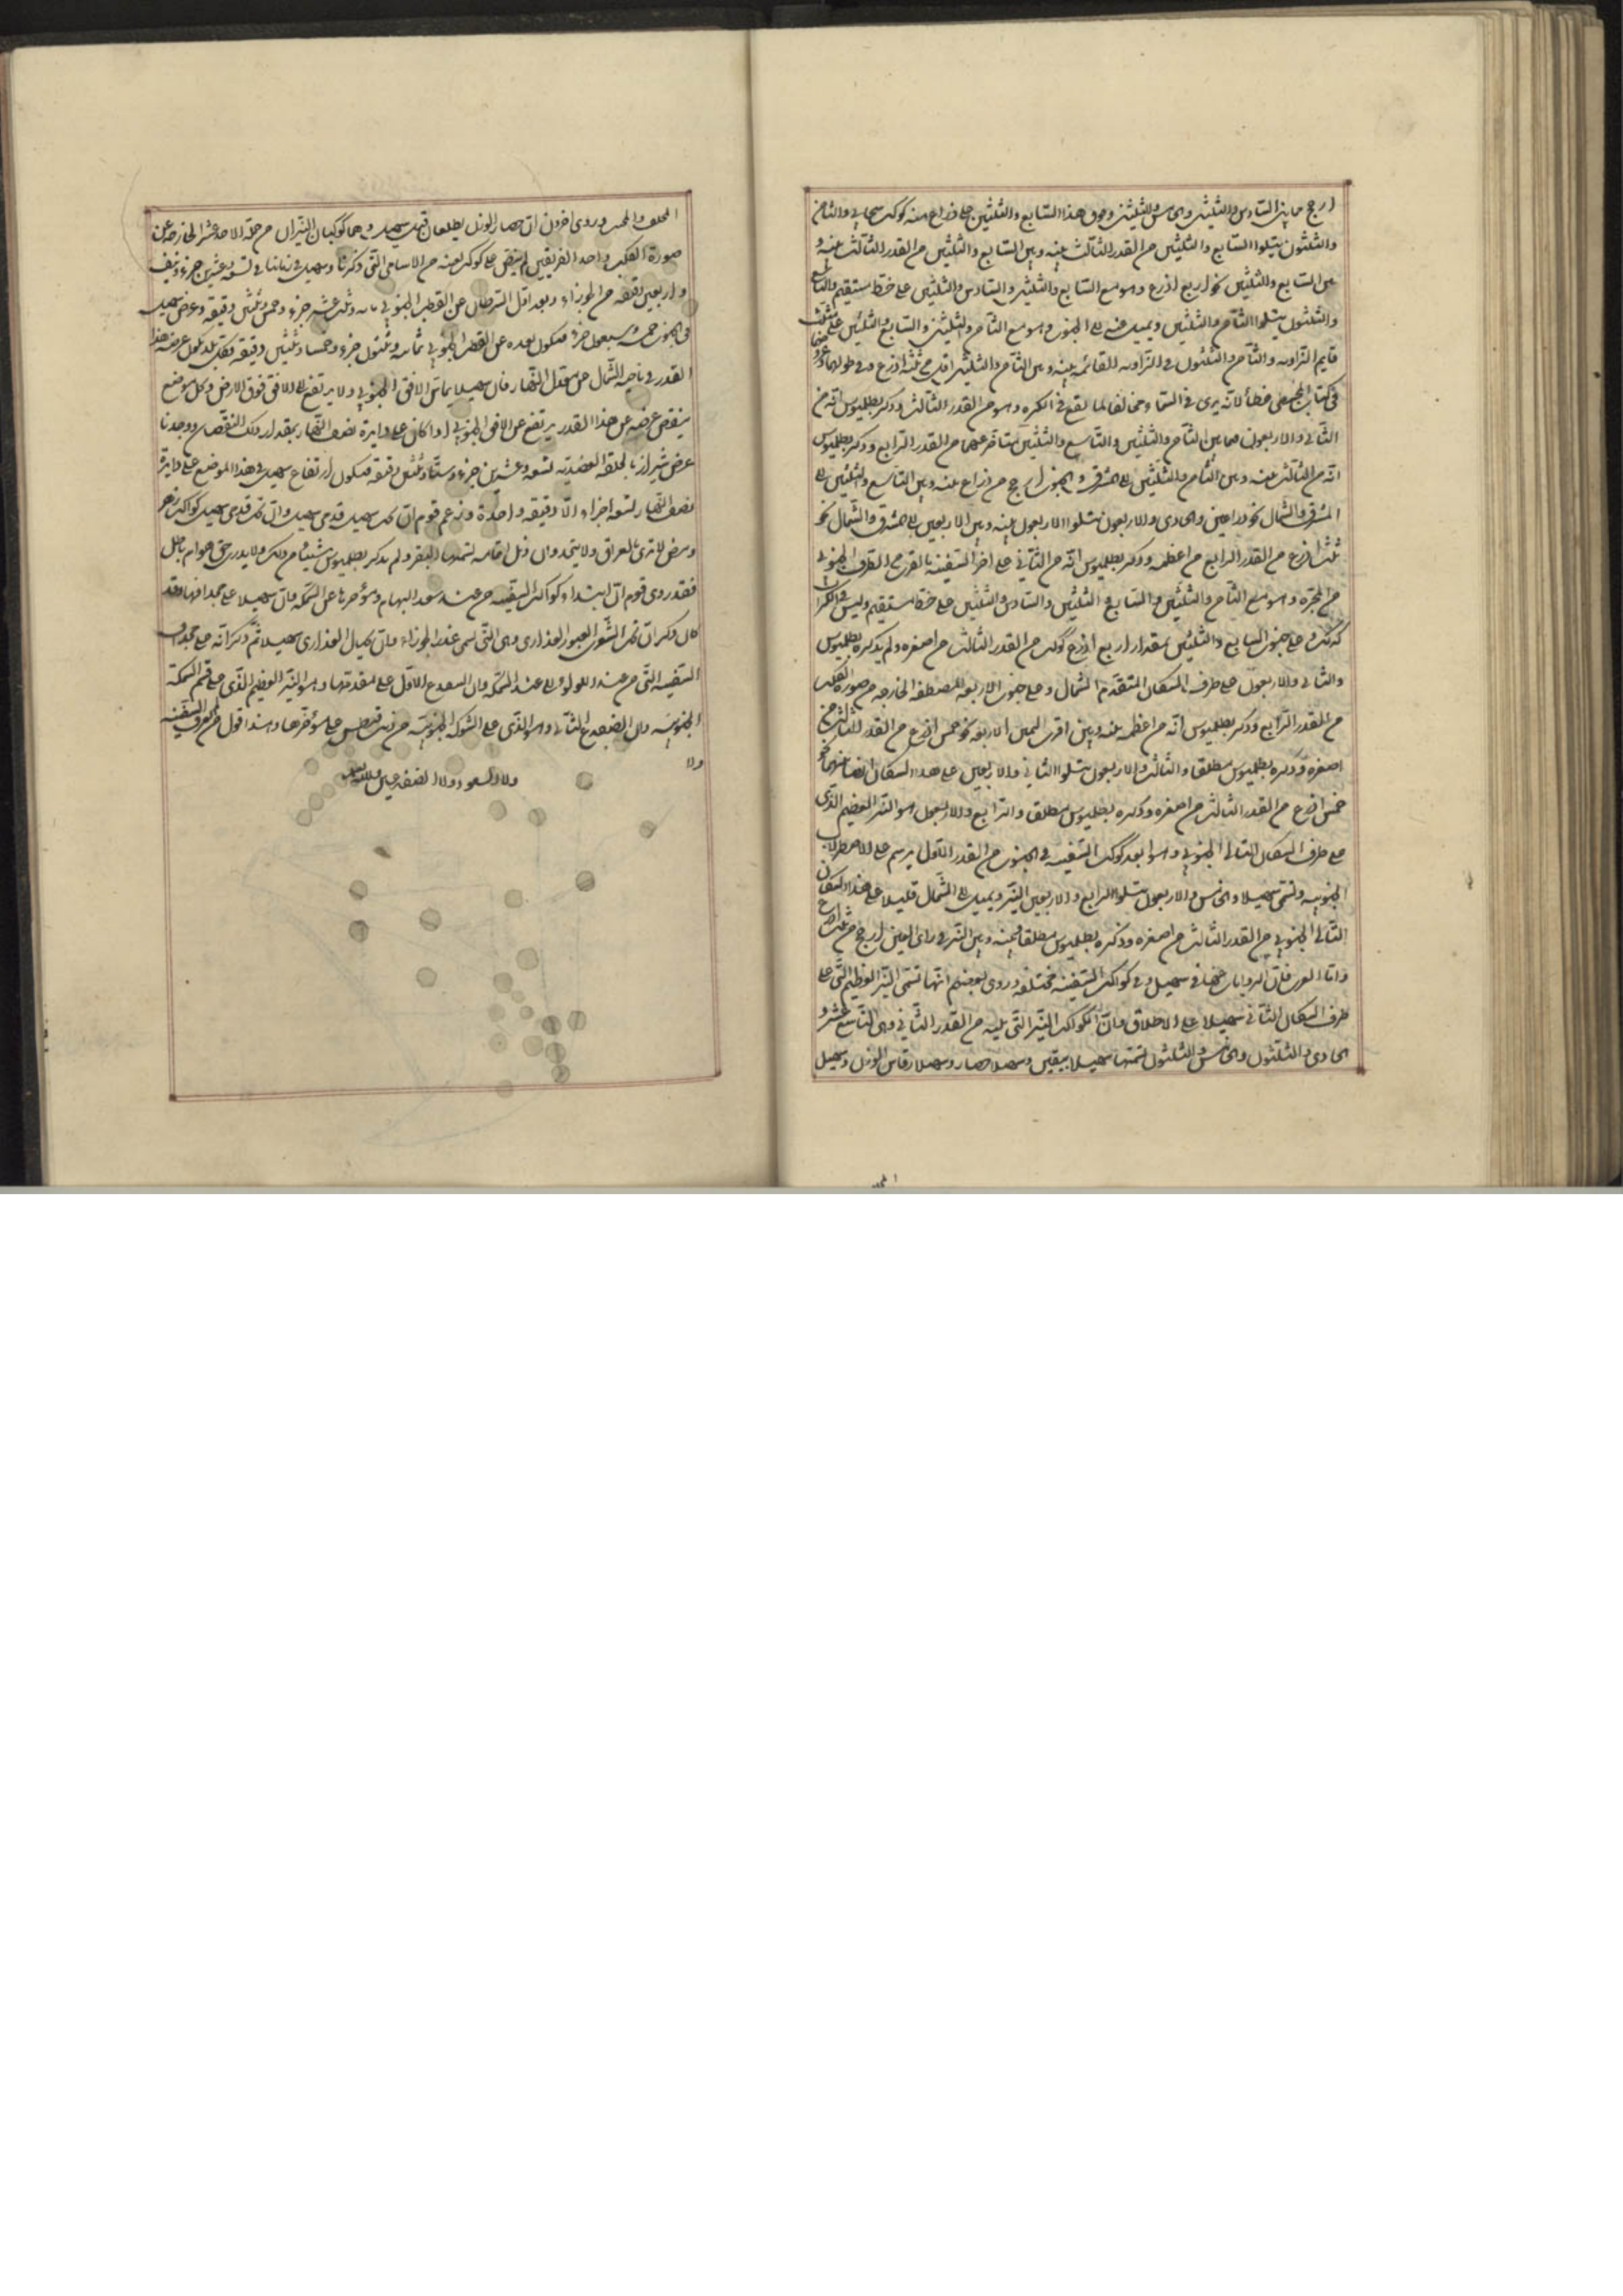 ارجح مما بين السادس والثلثين والخامس والثلثين وفوق هذا السابع والثلثين على ذراع منه كوكب سحابي والثامن
والثلثون يتلوا السابع والثلثين من القدر الثالث بينه وبين السابع والثلثين من القدر الثالث بينه و
بين السابع والثلثين نحو اربع اذرع وهو مع السابع والثلثين والسادس والثلثين على خط مستقيم والتاسع
والثلثون يتلوا الثامن والثلثين ويميل عنه الى الجنوب وهو مع الثامن والثلثين والسابع والثلثين على مثلث
قايم الزاويه والثامن والثلثون في الزاويه القائمه بينه وبين الثامن والثلثين اقل من ثلثة اذرع وفي طولهما وعرضهما
في كتاب المجسطي خطأ لانه يرى في السما مخالفا لما يقع في الكره وهو من القدر الثالث وذكر بطلميوس انه من
الثاني والاربعون فيما بين الثامن والثلثين والتاسع والثلثين متأخر عنهما من القدر الرابع وذكر بطلميوس
انه من الثالث بينه وبين الثامن والثلثين الى المشرق والجنوب ارجح من ذراع بينه وبين التاسع والثلثين الى
المشرق والشمال نحو ذراعين والحادي والاربعون يتلوا الاربعون بينه وبين الاربعين الى المشرق والشمال نحو
ثلث اذرع من القدر الرابع من اعظمه وذكر بطلميوس انه من الثاني على اخر السفينة بالقرب من الطرف الجنوبي
من المجرة وهو مع الثامن والثلثين والسابع والثلثين والسادس والثلثين على خط مستقيم وليس في الكره
كذلك وعلى جنوب السابع والثلثين بمقدار اربع اذرع كوكب من القدر الثالث من اصغره ولم يذكره بطلميوس
والثاني والاربعون على طرف السكان المتقدم الشمالي وعلى جنوب الاربعه المصطفه الخارجه من صورة الكلب
من القدر الرابع وذكر بطلميوس انه من اعظمه بينه وبين اقرب اليمين الاربعه نحو خمس اذرع من القدر الثالث من
اصغره وذكره بطلميوس مطلقا والثالث والاربعون يتلوا الثاني والاربعين على هذا السكان ايضا بينهما نحو
خمس اذرع من القدر الثالث من اصغره وذكره بطلميوس مطلقا والرابع والاربعون هو النير العظيم الذي
على طرف السكان التالي الجنوبي وهو ابعد كوكب السفينه في الجنوب من القدر الاول يرسم على الاصطرلاب
الجنوبيه وتسمى سهيلا والخامس والاربعون يتلوا الرابع والاربعين النير ويميل الى الشمال قليلا على هذا السكان
التالي الجنوبي من القدر الثالث من اصغره وذكره بطلميوس مطلقا وبينه وبين النير في راى العين ارجح من ثلث اذرع
واما العرب فان الروايات عنها في سهيل وفي كواكب السفينه مختلفه وروى بعضهم انها تسمى النير العظيم التى على
طرف السكان الثاني سهيلا على الاطلاق وان الكواكب النيرة التى يليه من القدر الثاني وهى التاسع عشر و
الحادي والثلثون والخامس والثلثون تسمتها سهيلا بلقين وسهيلا حضار وسهيلا رقاس الوزن وسهيل
المحلف والمحنث وروى اخرون ان حضار والوزن يطلعان قبل سهيل وهما كوكبان النيران من جملة الاحد عشر الخارجه عن
صورة الكلب واحد الفريقين لم يقف على كوكب بعينه من الاسامى التى ذكرنا وسهيل في زماننا في تسعه عشر جزء ونيف
واربعين دقيقه من الجوزاء وبعد اول السرطان عن القطب الجنوبي مائه وثلث عشر جزء وخمس وثلثين دقيقه وعرض سهيل
في الجنوب خمسه وسبعون جزء فيكون بعده عن القطب الجنوبي ثمانيه وثلثون جزء وخمسا وثلثين دقيقه فكل بلد يكون عرضه هذا
القدر في ناحية الشمال عن معدل النهار فان سهيلا يماس الافق الجنوبي ولا يرتفع الى الافق فوق الارض وكل موضع
ينقص عرضه عن هذا القدر يرتفع عن الافق الجنوبي اذا كان على دايرة نصف النهار بمقدار ذلك النقصان ووجدنا
عرض شيراز بالحلقه العضديه تسعه وعشرين جزء وستا وثلثين دقيقه فيكون ارتفاع سهيل في هذا الموضع على دايرة
نصف النهار تسعه اجزاء الا دقيقه واحدة وزعم قوم ان تحت سهيل قدمى سهيل وان تحت قدمى سهيل كواكب زهر
وبيض لا ترى بالعراق ولا بنجد وان اهل تهامه تسميها البقر ولم يذكر بطلميوس شيئا من ذلك ولا يدرى حق هو ام باطل
فقد روى قوم ان ابتداء كواكب السفينه من عند سعد البهام ومؤخرها عن السمكه وان سهيلا على مجدافها وقد
كان ذكر ان تحت الشعرى العبور العذارى وهى التى تسمى عذرة الجوزاء وان بحيال العذارى سهيلا ثم ذكر انه على مجداف
السفينه التى من عند الدلو الى عند السمكه وان الضفدع الاول على مقدمتها وهو النير العظيم الذي على فم السمكه
الجنوبيه وان الضفدع الثاني وهو الذي على الشوكه الجنوبيه من ذنب قيطس على مؤخرها وهذا قول من لم يعرف السفينه
ولا
ولا السعود ولا الضفدعين ولا